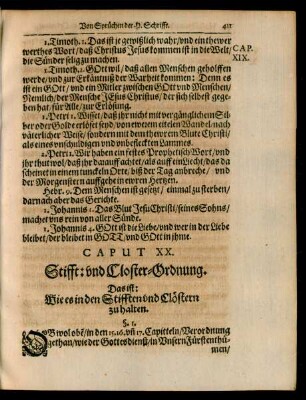 Von Sprüchen der H. Schrifft. 421
1. Timoth. 1. Das ist je gewißlich wahr/ und ein thewer
werthes Wort/ daß Christus Jesus kommen ist in die Welt/
die Sünder selig zu machen.
CAP.
XIX.
1. Timoth. 2. Gott wil/ daß allen Menschen geholffen
werde/ und zur Erkäntnuß der Warheit kommen: Denn es
ist ein Gott/ und ein Mitler/ zwischen Gott und Menschen/
Nemlich/ der Mensche Jesus Christus/ der sich selbest gege-
ben hat/ für Alle/ zur Erlösung.
1. Petri 1. Wisset/ daß ihr nicht mit vergänglichem Sil-
ber oder Golde erlöset seyd/ von ewrem eitelen Wandel nach
väterlicher Weise/ sondern mit dem thewren Blute Christi/
als eines unschüldigen und unbefleckten Lammes.
2. Petri 1. Wir haben ein festes Prophetisch Wort/ und
ihr thut wol/ daß ihr darauff achtet/ als auff ein Liecht/ das da
scheinet in einem tunckeln Orte/ biß der Tag anbreche/ und
der Morgenstern auffgehe in ewren Hertzen.
Hebr. 9. Dem Menschen ist gesetzt/ einmal zu sterben/
darnach aber das Gerichte.
1. Johannis 1. Das Blut Jesu Christi/ seines Sohns/
machet uns rein von aller Sünde.
1. Johannis 4. Gott ist die Liebe/ und wer in der Liebe
bleibet/ der bleibet in GOTT und Gott in ihme.
CAPUT XX.
Stifft: und Closter-Ordnung.
Das ist:
Wie es in den Stifften und Clöstern
zu halten.
§. 1.
Ob wol obē/ in den 15. 16. uñ 17. Capitteln/ Verordnung
gethan/ wie der Gottesdienst/ in Unsern Fürstenthü-
men/